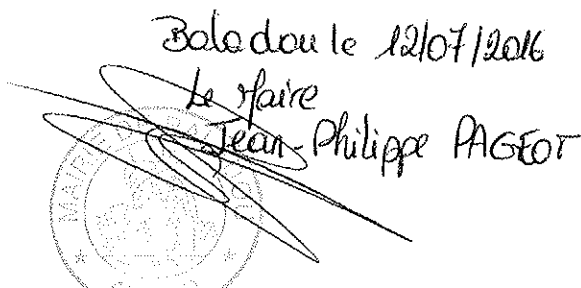 Baladou le 12/07/2016
Le Maire
Jean-Philippe PAGEOT
MAIRIE